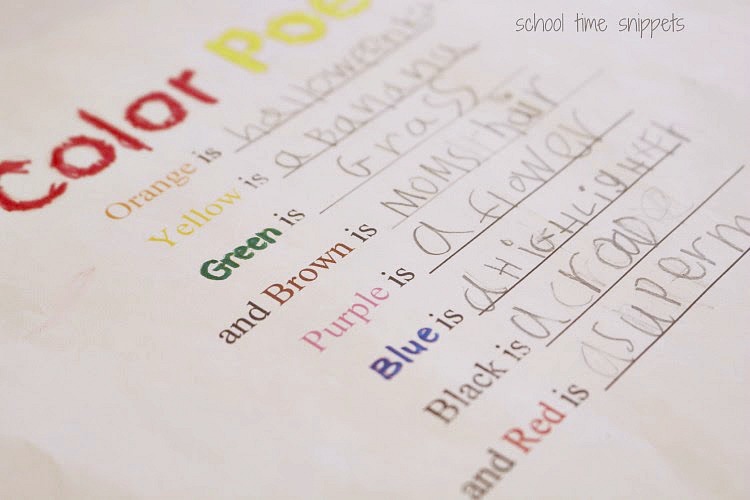 school time snippets
Color Poe
Orange is halloween
Yellow is a Banana
Green is Grass
and Brown is MOMS hair
Purple is a flower
Blue is a HiGHLiGHtEr
Black is a road
and Red is a superm